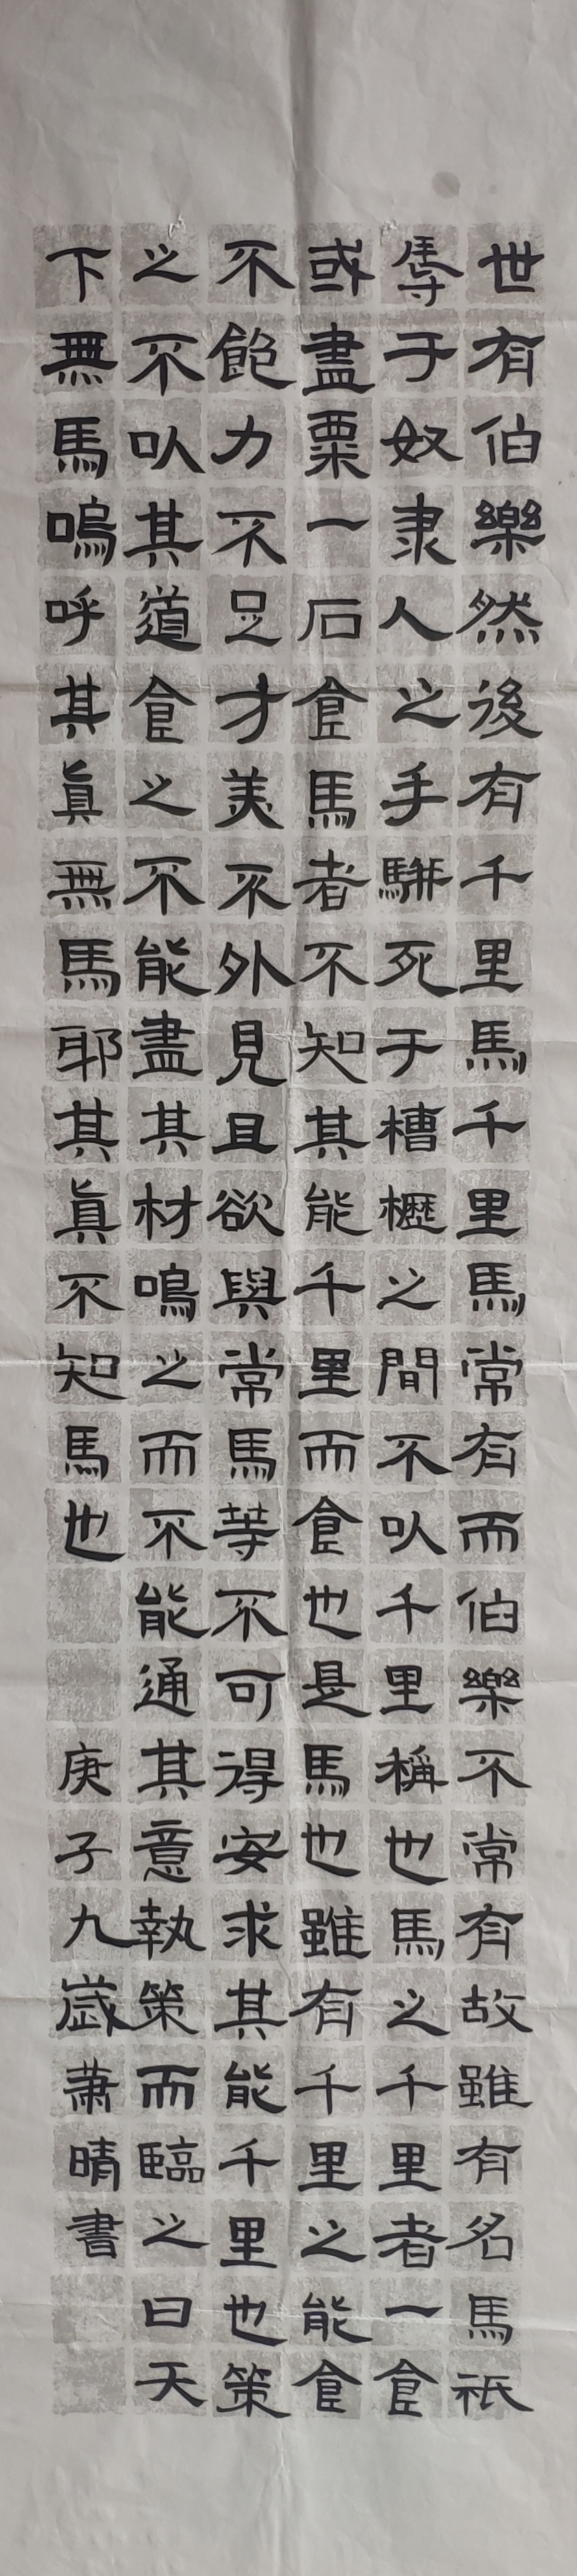 世有伯樂然後有千里馬千里馬常有而伯樂不常有故雖有名馬祇
辱于奴隶人之手駢死于槽櫪之間不以千里稱也馬之千里者一食
或盡粟一石食馬者不知其能千里而食也是馬也雖有千里之能食
不飽力不足才美不外見且欲與常馬等不可得安求其能千里也策
之不以其道食之不能盡其材鳴之而不能通其意執策而臨之曰天
下無馬嗚呼其眞無馬耶其眞不知馬也 庚子九歲蕭晴書